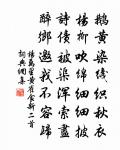 鵝黃染繡織秋衣
楊柳吹綿細細披
詩債被渠渾索盡
醉鄉邀我不容歸
楊萬里黃雀食新二首
詞典網集